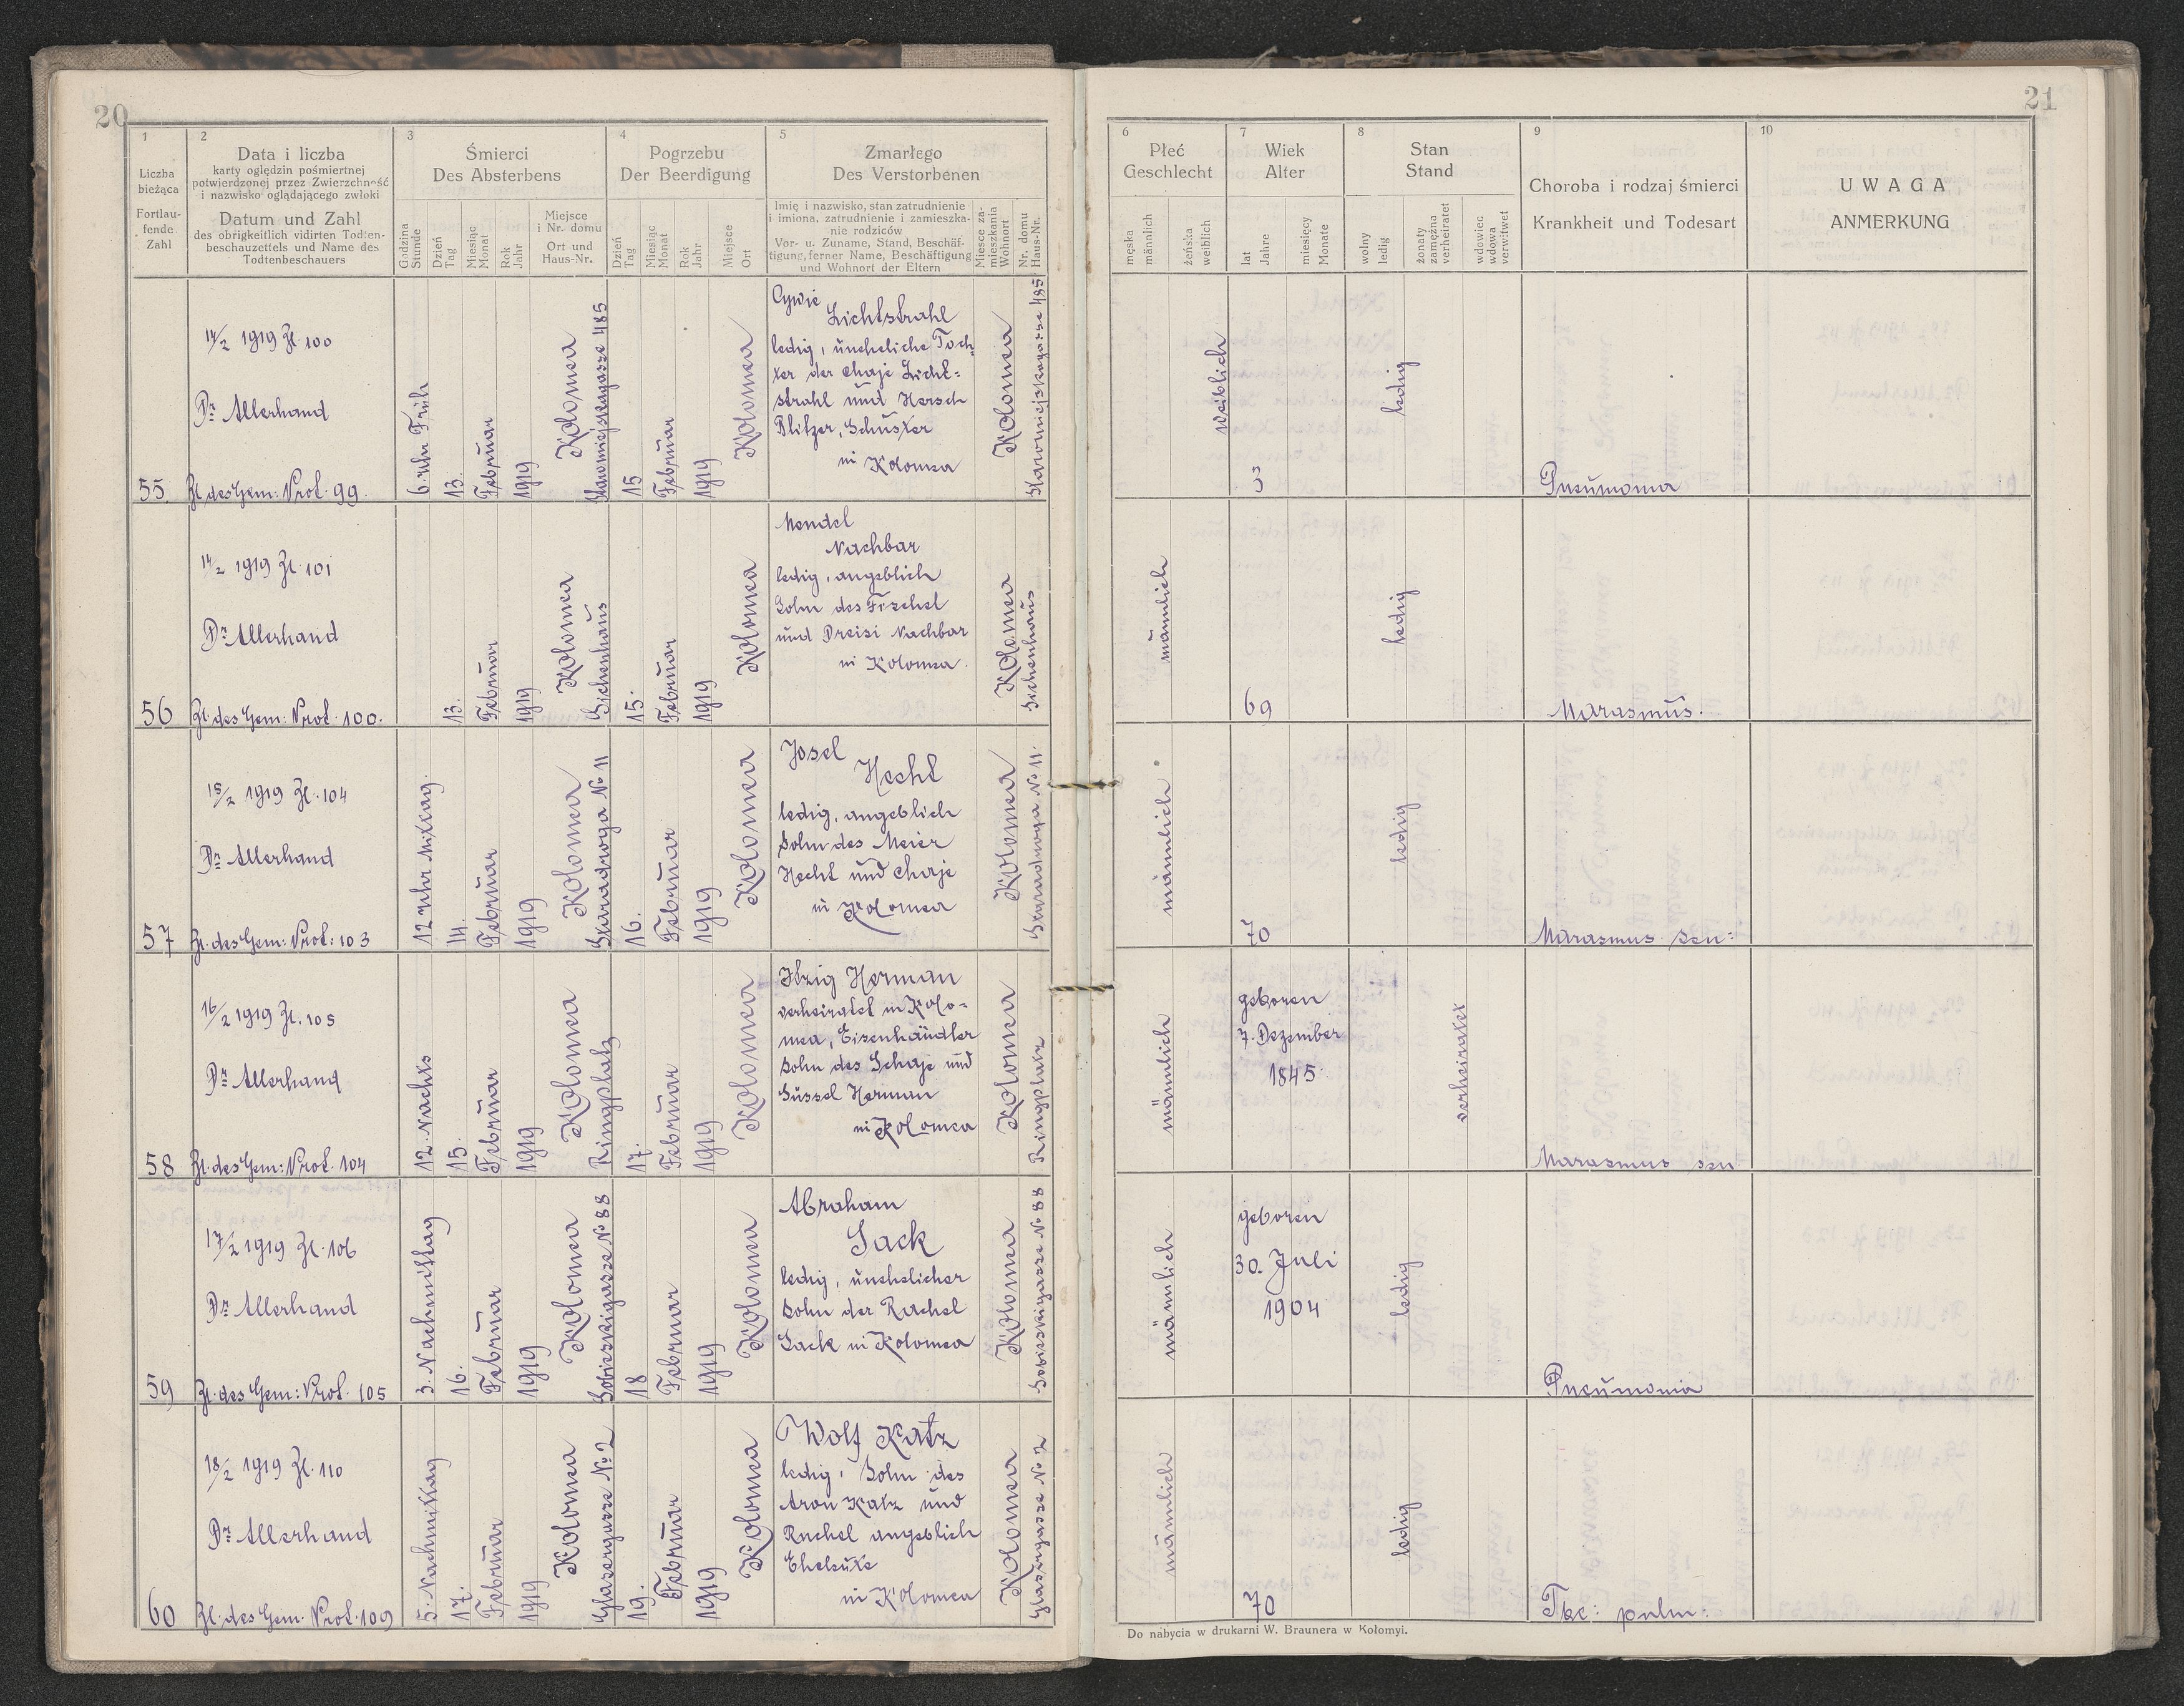 20
1
Liczba
bieżąca
Fortlau-
fende
Zahl
2
Data i liczba
karty oględzin pośmiertnej
potwierdzonej przez Zwierzchność
i nazwisko oglądającego zwłoki
Datum und Zahl
des obrigkeitlich vidirten Todten-
beschauzettels und Name des
Todtenbeschauers
3
Śmierci
Des Absterbens
Godzina
Stunde
Dzień
Tag
Miesiąc
Monat
Rok
Jahr
Miejsce
i Nr. domu
Ort und
Haus-Nr.
4
Pogrzebu
Der Beerdigung
Dzień
Tag
Miesiąc
Monat
Rok
Jahr
Miejsce
Ort
5
Zmarłego
Des Verstorbenen
Imię i nazwisko, stan zatrudnienie
i imiona, zatrudnienie i zamieszka-
nie rodziców
Vor- u. Zuname, Stand, Beschäf-
tigung, ferner Name, Beschäftigung
und Wohnort der Eltern
Miesce za-
mieszkania
Wohnort
Nr. domu
Haus-Nr.
55
14/2 1919 Zl. 100
Dr Allerhand
Zl. des Gem: Prot. 99.
6. Uhr Früh
13.
Februar
1919
Kolomea
485
15
Februar
1919
Kolomea
Cywie
Lichtstrahl
ledig, uneheliche Toch
ter der Chaje Licht=
strahl und Hersch
Blitzer, Schuster
in Kolomea
Kolomea
485
56
14/2 1919 Zl. 101
Dr Allerhand
Zl. des Gem: Prot. 100.
13.
Februar
1919
Kolomea
Siechenhaus
15.
Februar
1919
Kolomea
Mendel
Nachbar
ledig, angeblich
Sohn des Fischel
und Preisi Nachbar
in Kolomea.
Kolomea
Siechenhaus
57
15/2 1919 Zl. 104
Dr Allerhand
Zl. des Gem: Prot: 103
12 Uhr Mittag.
14.
Februar
1919
Kolomea
Staradroga No 11
16.
Februar
1919
Kolomea
Josel
Hecht
ledig, angeblich
Sohn des Meier
Hecht und Chaje
in Kolomea
Kolomea
Staradroga No 11.
58
16/2 1919 Zl. 105
Dr Allerhand
Zl. des Gem: Prot. 104
12. Nachts
15.
Februar
1919
Kolomea
Ringplatz
17.
Februar
1919
Kolomea
Itzig Herman
verheiratet in Kolo=
mea, Eisenhändler
Sohn des Schaje und
Süssel Herman
in Kolomea
Kolomea
Ringplatz
59
17/2 1919 Zl. 106
Dr Allerhand
Zl. des Gem: Prot. 105
3. Nachmittag
16.
Februar
1919
Kolomea
Sobieskigasse No 88
18
Februar
1919
Kolomea
Abraham
Sack
ledig, unehelicher
Sohn der Rachel
Sack in Kolomea
Kolomea
Sobieskigasse No 88
60
18/2 1919 Zl. 110
Dr Allerhand
Zl. des Gem. Prot. 109
5. Nachmittag
17.
Februar
1919
Kolomea
Glasergasse No 2
19.
Februar
1919
Kolomea
Wolf Katz
ledig, Sohn des
Aron Katz und
Ruchel angeblich
Eheleute
in Kolomea
Kolomea
Glasergasse No 2
21
6
Płeć
Geschlecht
męska
männlich
żeńska
weiblich
7
Wiek
Alter
lat
Jahre
miesięcy
Monate
8
Stan
Stand
wolny
ledig
żonaty
zamężna
verheiratet
wdowiec
wdowa
verwitwet
9
Choroba i rodzaj śmierci
Krankheit und Todesart
10
UWAGA
ANMERKUNG
weiblich
3
ledig
Pneumonia
männlich
69
ledig
Marasmus.
männlich
70
ledig
Marasmus sen:
männlich
geboren
7. Dezember
1845
verheiratet
Marasmus sen
männlich
geboren
30. Juli
1904
ledig
Pneumonia
männlich
70
ledig
Tbc: pulm:
Do nabycia w drukarni W. Braunera w Kołomyi.